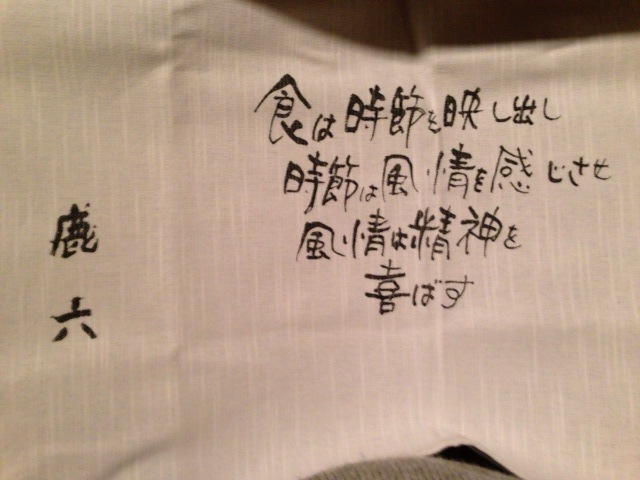 食は時節を映し出し
時節は風情を感じさせ
風情は精神を
喜ばす
鹿六